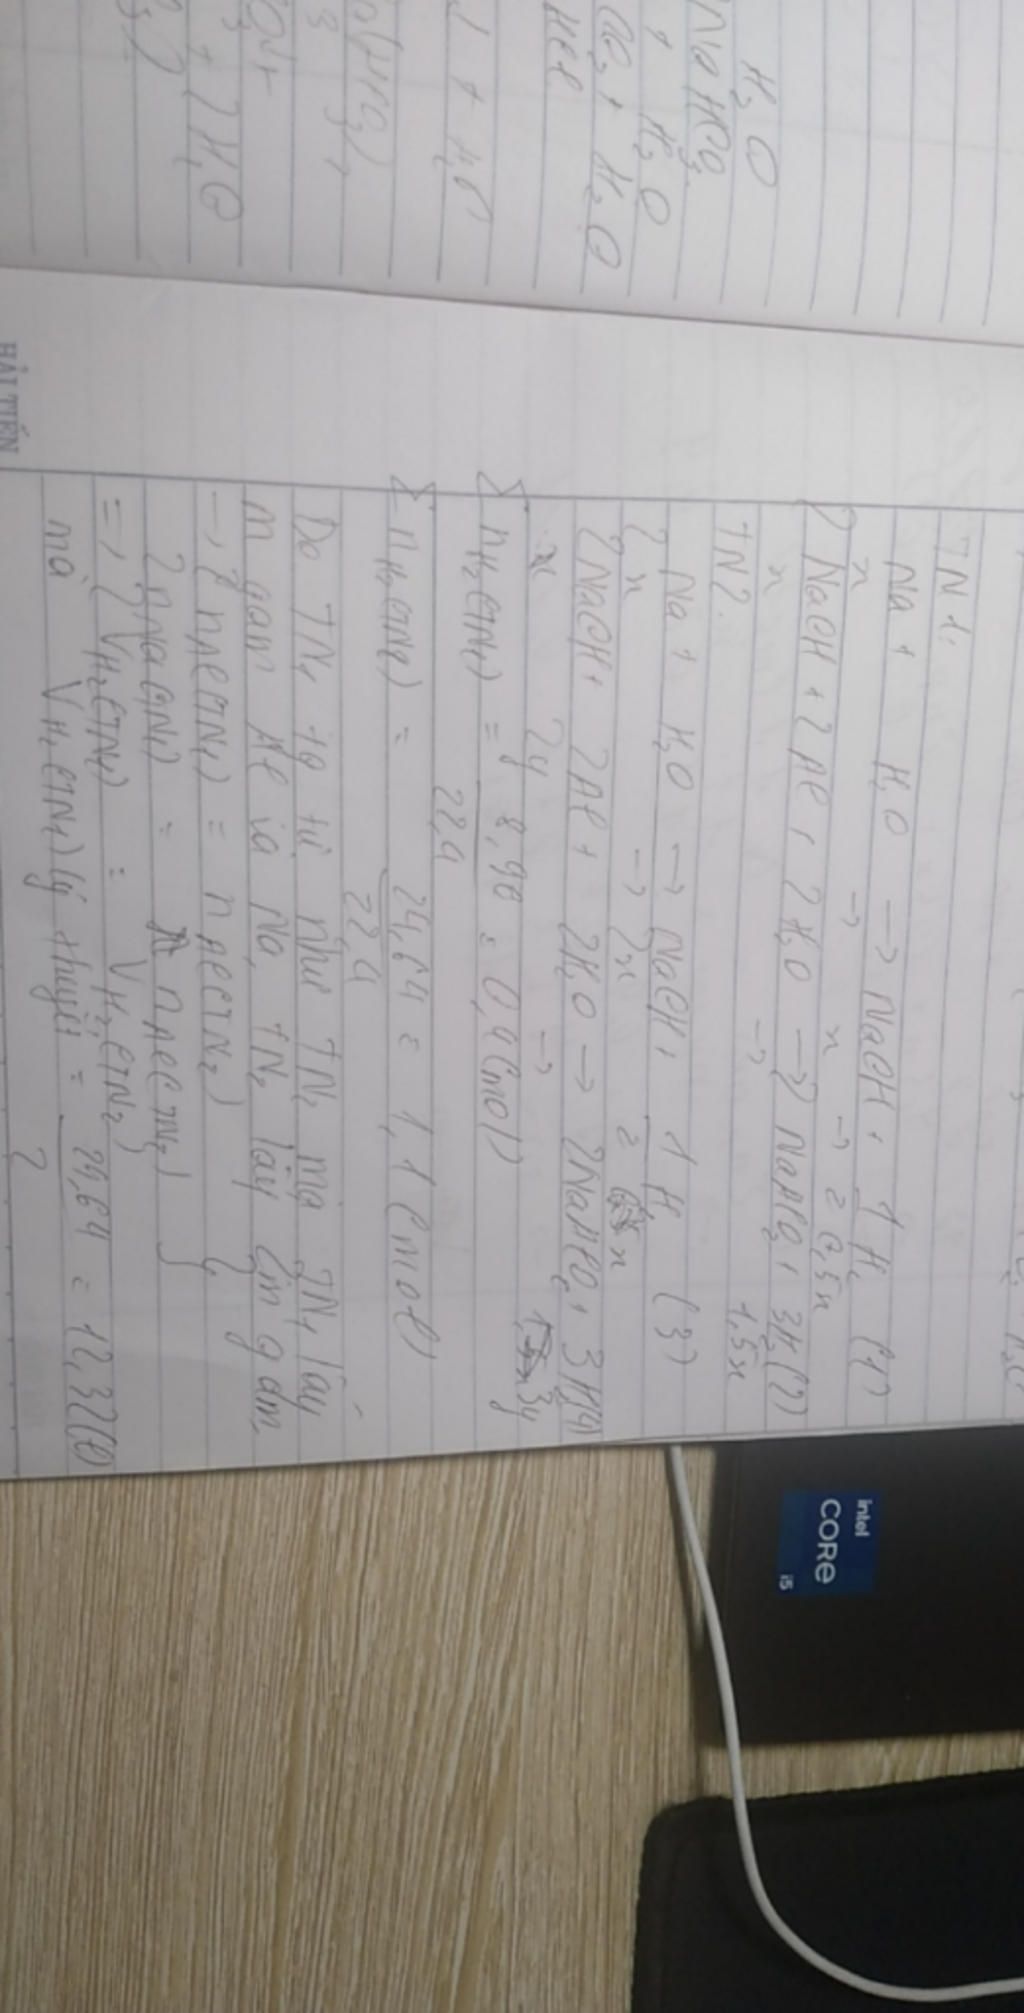 H₂O
NaHCO₃
+ H₂O
CO₂ + H₂O
HCl
+ H₂O
+ 2H₂O
HẢI TIẾN
TN1:
Na + H₂O → NaOH + 1/2 H₂ (1)
x → x → 0,5x
2NaOH + 2Al + 2H₂O → 2NaAlO₂ + 3H₂ (2)
x → 1,5x
TN2:
Na + H₂O → NaOH + 1/2 H₂ (3)
2x → 2x x
2NaOH + 2Al + 2H₂O → 2NaAlO₂ + 3H₂ (4)
2y → 3y
Σ nH₂(TN1) = 8,96/22,4 = 0,4 (mol)
Σ nH₂(TN2) = 24,64/22,4 = 1,1 (mol)
Do TN1 tg tự như TN2 mà TN1 lấy
m gam Al và Na, TN2 lấy 2m gam
→ 2nAl(TN1) = nAl(TN2)
2nNa(TN1) = nAl(TN2)
=> 2VH₂(TN1) = VH₂(TN2)
mà VH₂(TN1) lý thuyết = 24,64/2 = 12,32 (l)
intel
CORE
i5